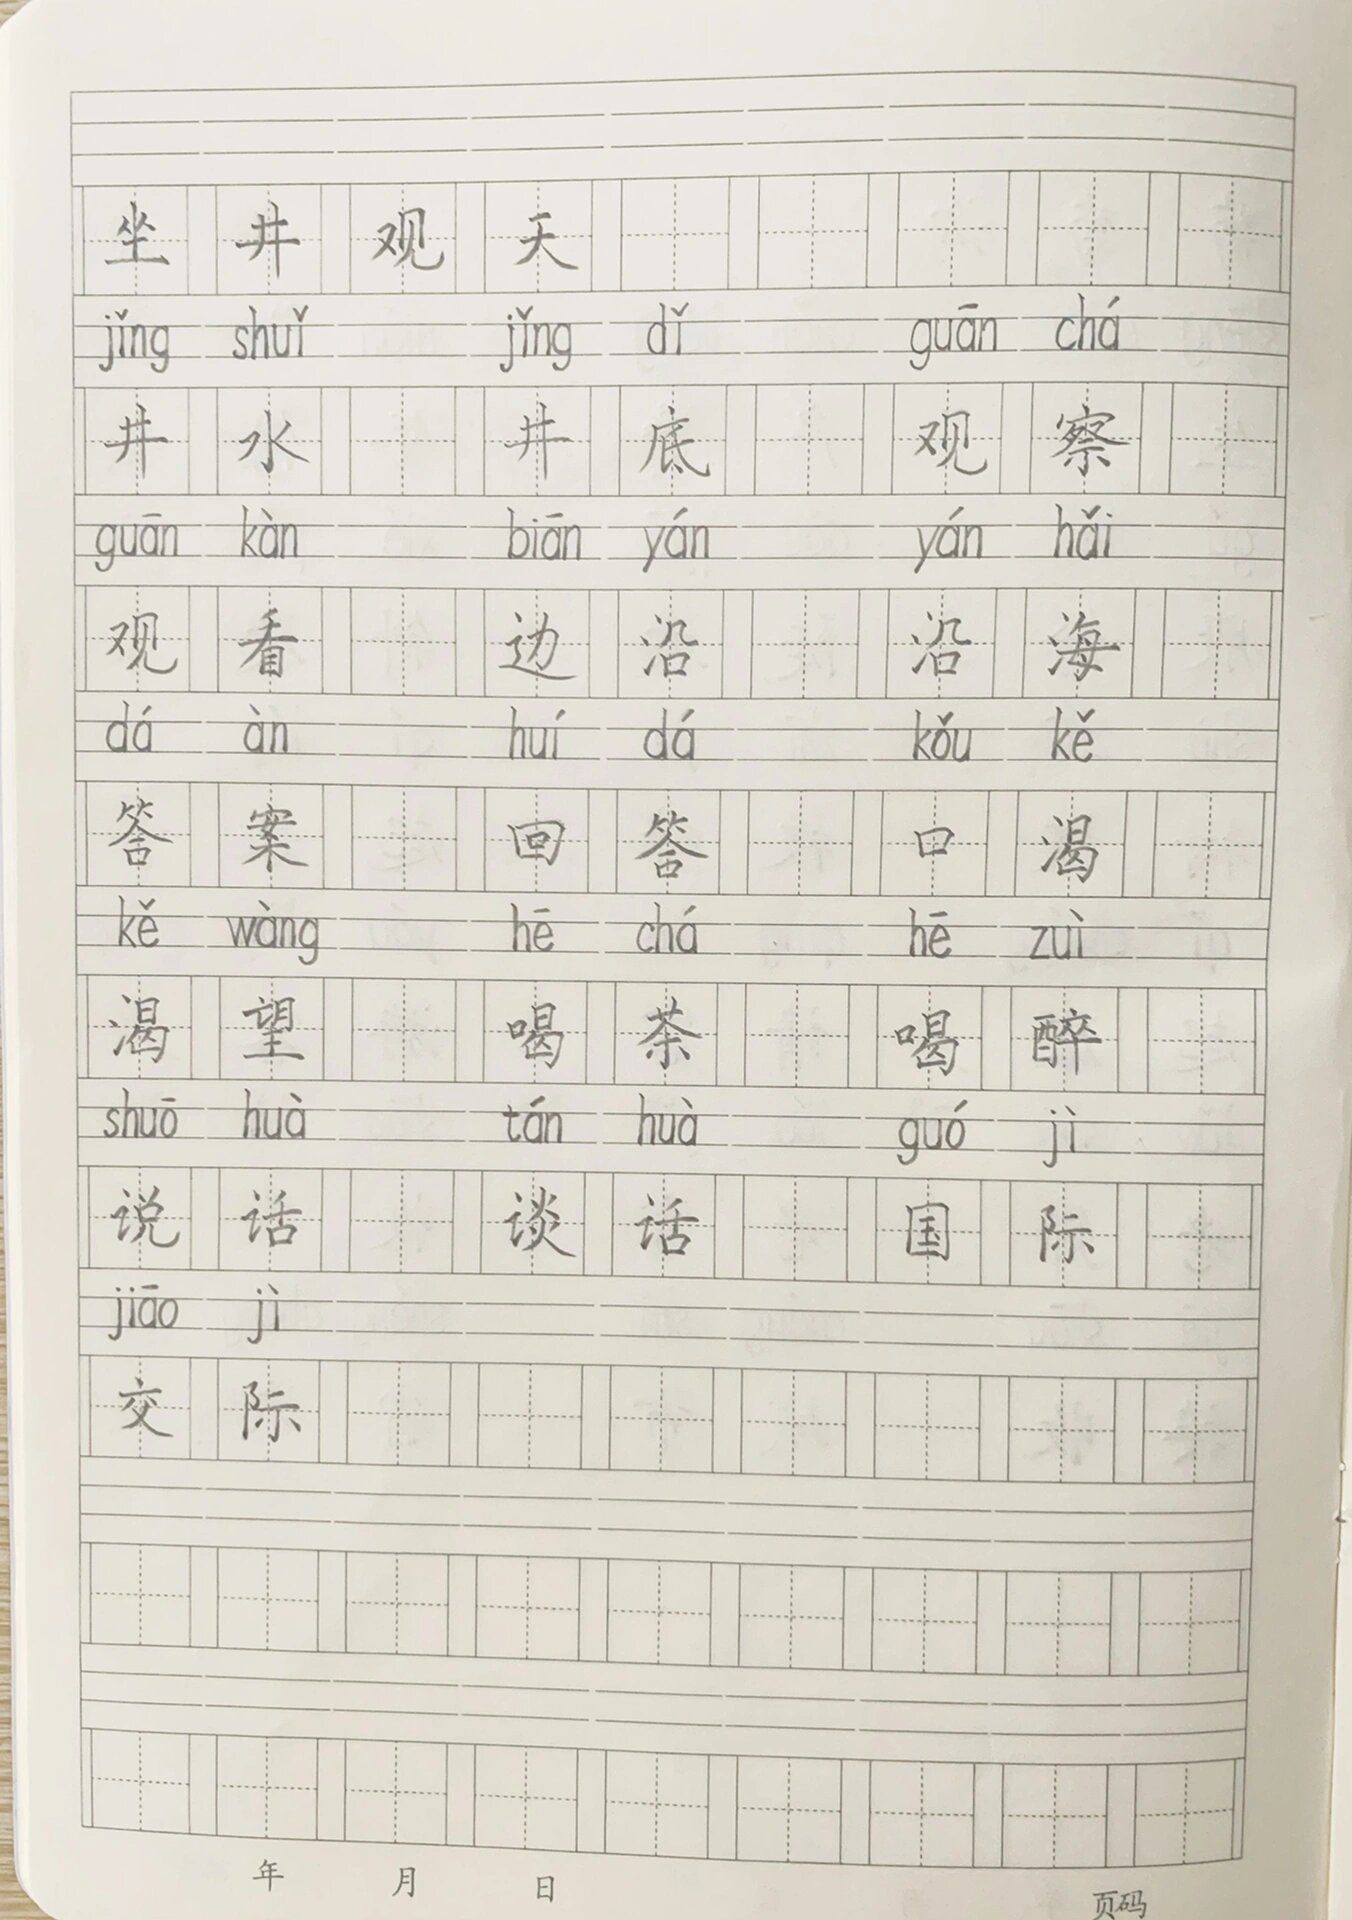 坐井观天
jǐng shuǐ jǐng dǐ guān chá
井水 井底 观察
guān kàn biān yán yán hǎi
观看 边沿 沿海
dá àn huí dá kǒu kě
答案 回答 口渴
kě wàng hē chá hē zuì
渴望 喝茶 喝醉
shuō huà tán huà guó jì
说话 谈话 国际
jiāo jì
交际
年 月 日 页码